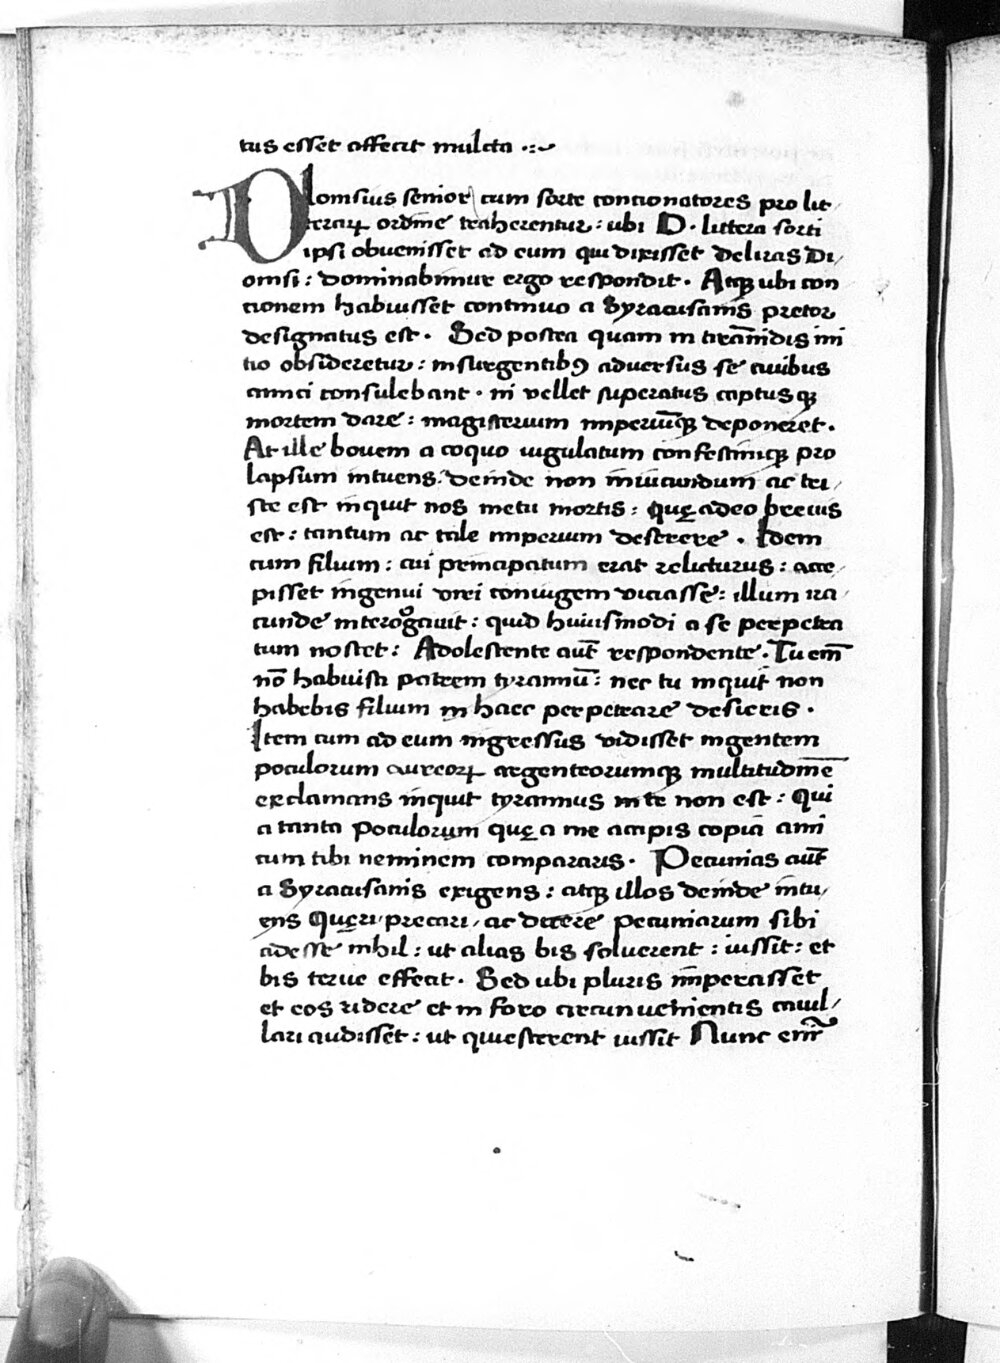 tus esset affecit mulcta .:~
Dionisius senior cum sorte contionatores pro lit/
terarꝝ ordine traherentur: ubi D. littera sorti
ipsi obuenisset ad eum qui dixisset deliras Di/
onisi: dominabimur ergo respondit. Atqꝫ ubi con
tionem habuisset continuo a Syracusanis pretor
designatus est. Sed postea quam in tirānidis ini
tio obsideretur: insurgentibꝯ aduersus se ciuibus
amici consulebant. ni vellet superatus captusqꝫ
mortem dare: magisterium imperiūqꝫ deponeret.
At ille bouem a coquo iugulatum confestimqꝫ pro
lapsum intuens: deinde non iniucundum ac tri/
ste est inquit nos metu mortis: quę adeo breuis
est: tantum ac tale imperium deserere. Idem
cum filium: cui principatum erat relicturus: acce/
pisset ingenui viri coniugem viciasse: illum ira/
cunde interogauit: quid huiusmodi a se perpetra
tum nosset: Adolescente aut̄ respondente. Tu em̄
nō habuisti patrem tyrannū: nec tu inquit non
habebis filium in haec perpetrare desieris.
Item cum ad eum ingressus vidisset ingentem
poculorum aureorꝝ argenteorumqꝫ multitudinē
exclamans inquit tyrannus in te non est: Qui
a tanta poculorum quę a me accipis copia ami
cum tibi neminem compararis. Pecunias aut̄
a Syracusanis exigens: atqꝫ illos deinde intu/
ens Quęri/ precari/ ac dicere pecuniarum sibi
adesse nihil: ut alias bis soluerent: iussit: et
bis terue effecit. Sed ubi pluris imperasset
et eos ridere et in foro circunuenientis cauil/
lari audisset: ut quiescerent iussit Nunc enī